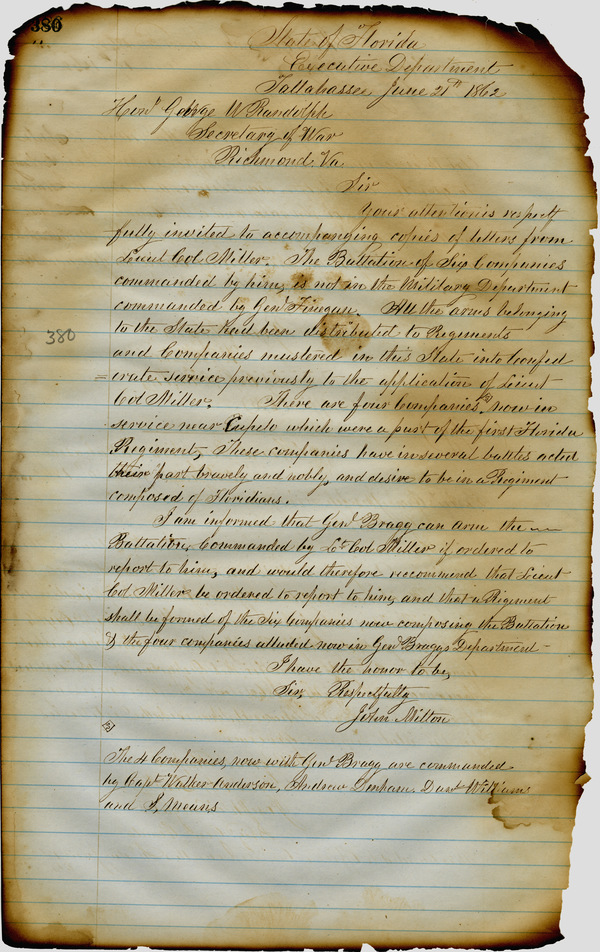 386
State of Florida
Executive Department
Tallahassee June 21th 1862
Honl George W Randolph
Secretary of War
Richmond Va.
Sir
Your attention is respect
fully invited to accompanging copies of letters from
Lieut Col Miller. The Battalion of Six Companies
commanded by him, is not in the Military Department
commanded by Genl Finegan. All the arms belonging
to the State had been distributed to Regiments
380
and Companies mustered in this State into Confed
=erate service previously to the application of Lieut
Col Miller. There are four Companies now in
service near Tupelo which were a part of the first Florida
Regiment, These companies have in several battles acted
their part bravely and nobly, and desire to be in a Regiment
composed of Floridians.
I am informed that Genl Bragg can arm the
Battalion, Commanded by Lt Col Miller if ordered to
report to him, and would therefore reccommend that Lieut
Col Miller be ordered to report to him, and that a Regiment
shall be formed of the Six Companies now composing the Battalion
& the four companies alluded now in Genl Braggs Department -
I have the honor to be,
Sir, Respectfully
John Milton
The 4 Companies, now with Genl Bragg are commanded
by Capt Walker Anderson, Andrew Denham. Danl Williams
and S, Means